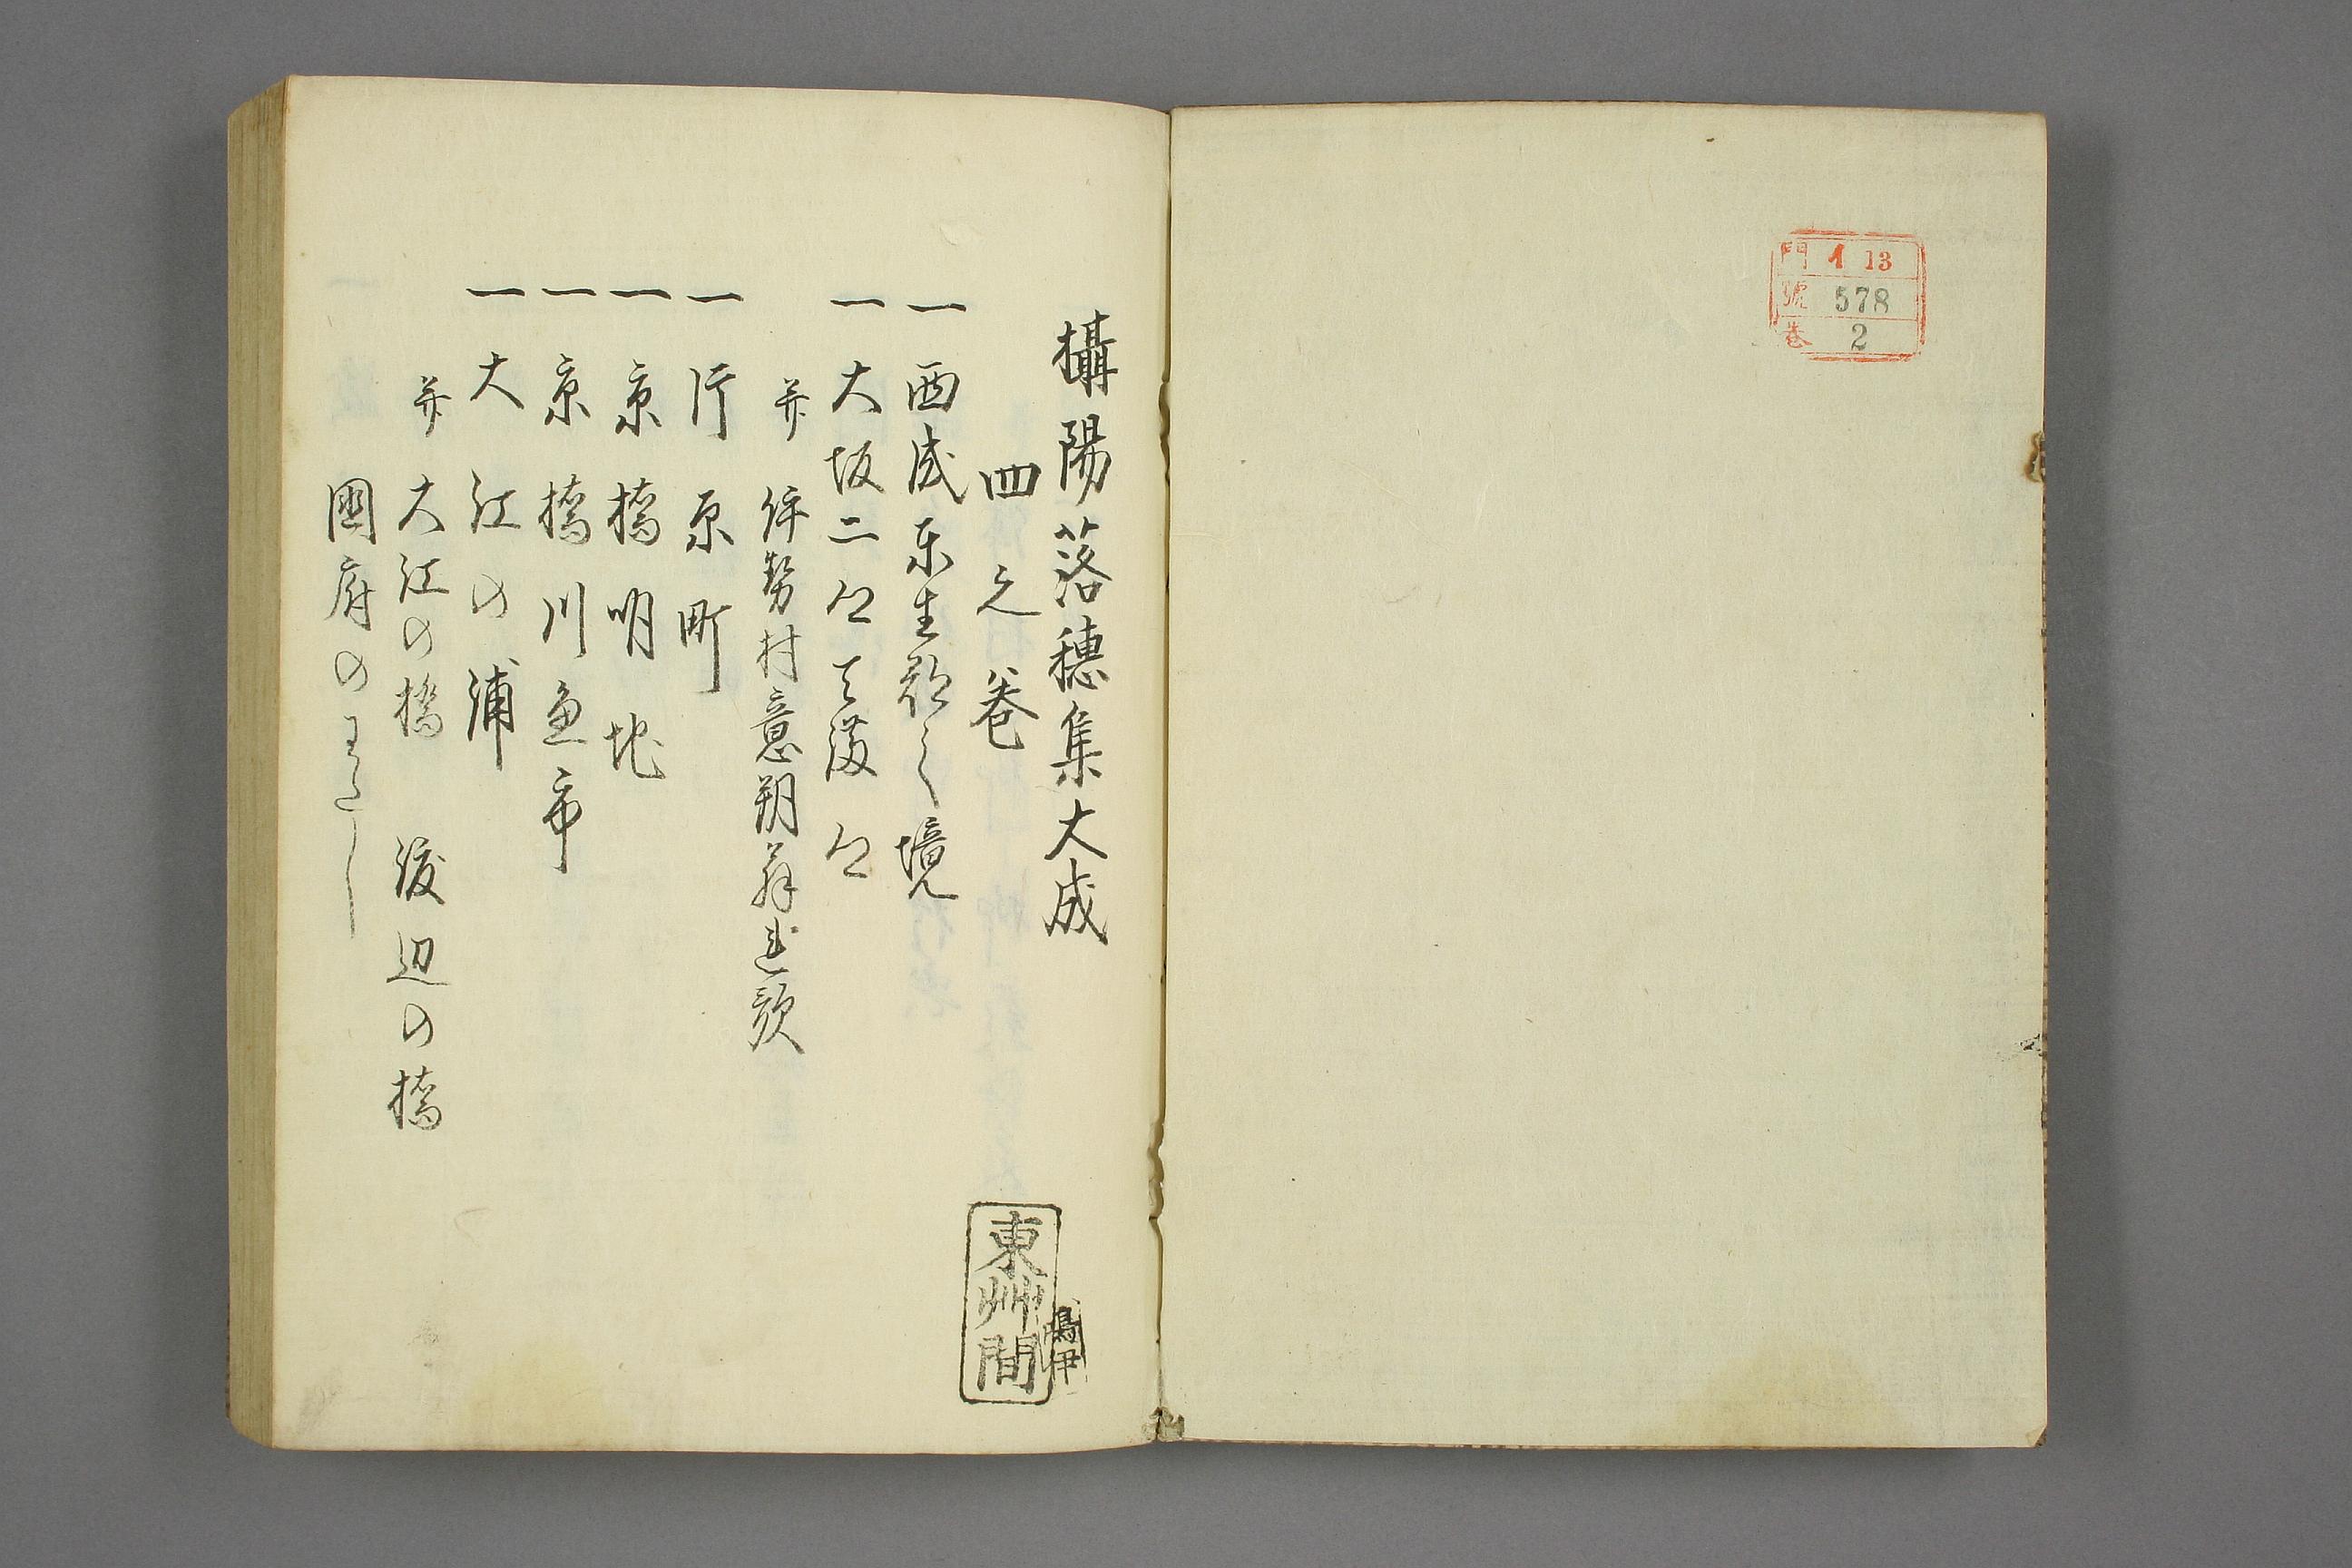 門 イ 13
號 578
巻 2
攝陽落穗集大成
四之巻
一 西成東生郡之境
一 大坂二郷天満郷
并 伊勢村意朔翁連歌
一 片原町
一 京橋明地
一 京橋川魚市
一 大江の浦
并 大江の橋 渡辺の橋
國府のわたし
東艸間